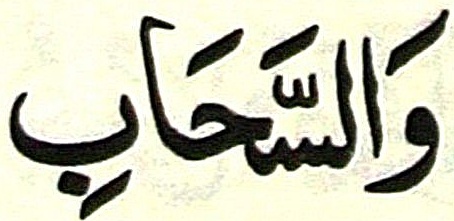 وَالسَّحَابِ